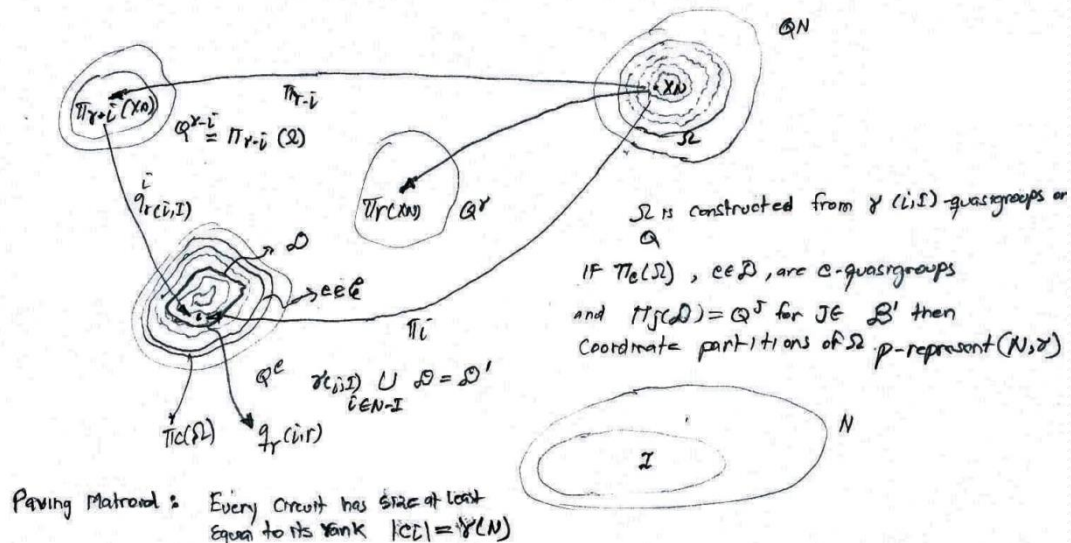 QN
πr-i
πr+i (XN)
XN
Q^r-i = πr-i (Ω)
Ω
i
qr(i,I)
πr(XN)
Q^r
Ω is constructed from γ (i,I)-quasigroups on
Q
D
IF πc(Ω) , c∈D, are c-quasigroups
c∈C
and πJ(Ω) = Q^J for J∈ B' then
πi
Coordinate partitions of Ω p-represent (N,r)
Q^c
γ(i,I) ∪ D = D'
i∈N-I
N
πc(Ω)
qr(i,I)
I
Paving Matroid : Every Circuit has size at least
Equal to its rank |Ci| = r(N)